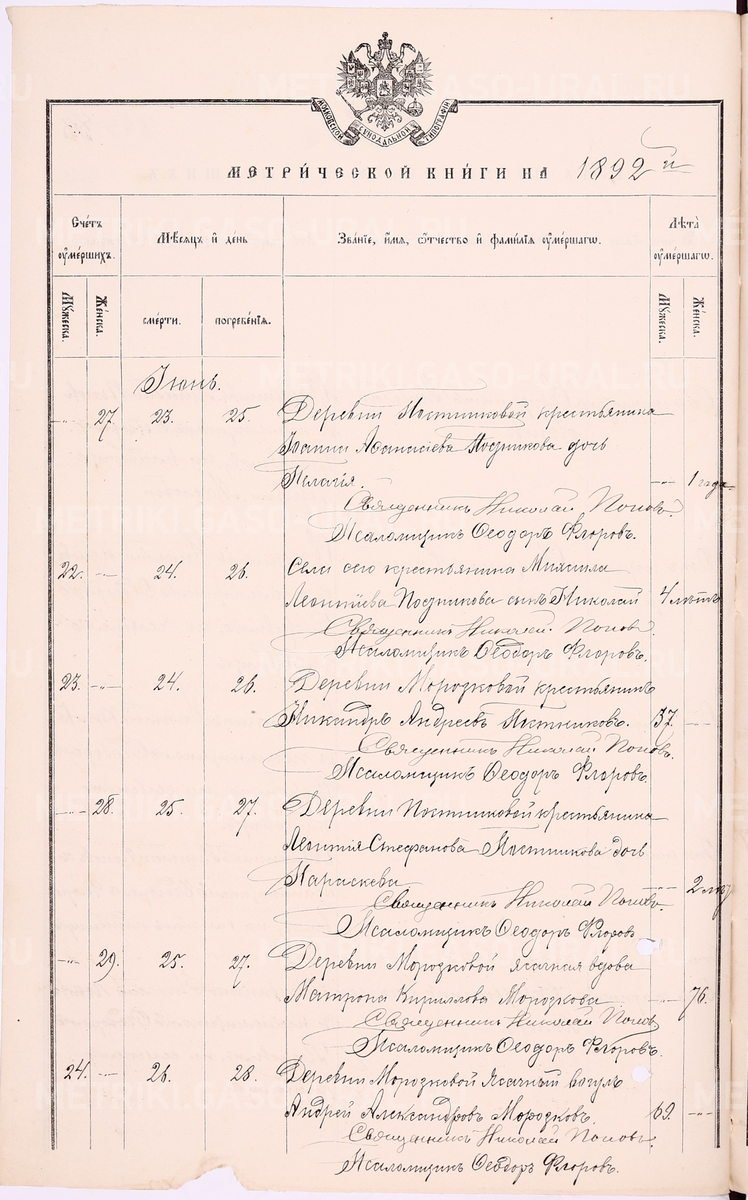 МОСКОВСКОЙ СѴНОДАЛЬНОЙ ТИПОГРАФІИ
МЕТРИ́ЧЕСКОЙ КНИ́ГИ НА 1892 й
Сче́тъ ᲂу҆ме́ршихъ.
Мѣ́сяцъ и҆ де́нь
Зва́нїе, и҆́мя, ѻ҆́тчество и҆ фами́лїѧ ᲂу҆ме́ршагѡ.
Лѣ̀та ᲂу҆ме́ршагѡ.
Мꙋ́жеска.
Же́нска.
сме́рти.
погребе́нїѧ.
Мꙋ́жеска.
Же́нска.
Іюнь.
-„- 27 23. 25. Деревни Постниковой крестьянина
Іоанна Аѳанасіева Посникова дочь
Пелагія. -„- 1 года.
Священникъ Николай Поповъ.
Псаломщикъ Ѳеодоръ Флоровъ.
22. -„- 24. 26. Села сего крестьянина Михаила
Леонтіева Посникова сынъ Николай 4 лѣтъ
Священникъ Николай Поповъ.
Псаломщикъ Ѳеодоръ Флоровъ.
23. -„- 24. 26. Деревни Мородковой крестьянинъ
Никандръ Андреевъ Постниковъ. 37. -„-
Священникъ Николай Поповъ.
Псаломщикъ Ѳеодоръ Флоровъ.
-„- 28. 25. 27. Деревни Постниковой крестьянина
Леонтія Стефанова Постникова дочь
Параскева -„- 2 лѣ
Священникъ Николай Поповъ.
Псаломщикъ Ѳеодоръ Флоровъ
-„- 29. 25. 27. Деревни Мородковой ясачная вдова
Матрона Кириллова Мородкова -„- 76.
Священникъ Николай Поповъ
Псаломщикъ Ѳеодоръ Флоровъ.
24. -„- 26. 28. Деревни Мородковой Ясачный вогулъ
Андрей Александровъ Мородковъ. 69. -„-
Священникъ Николай Поповъ.
Псаломщикъ Ѳеодоръ Флоровъ.